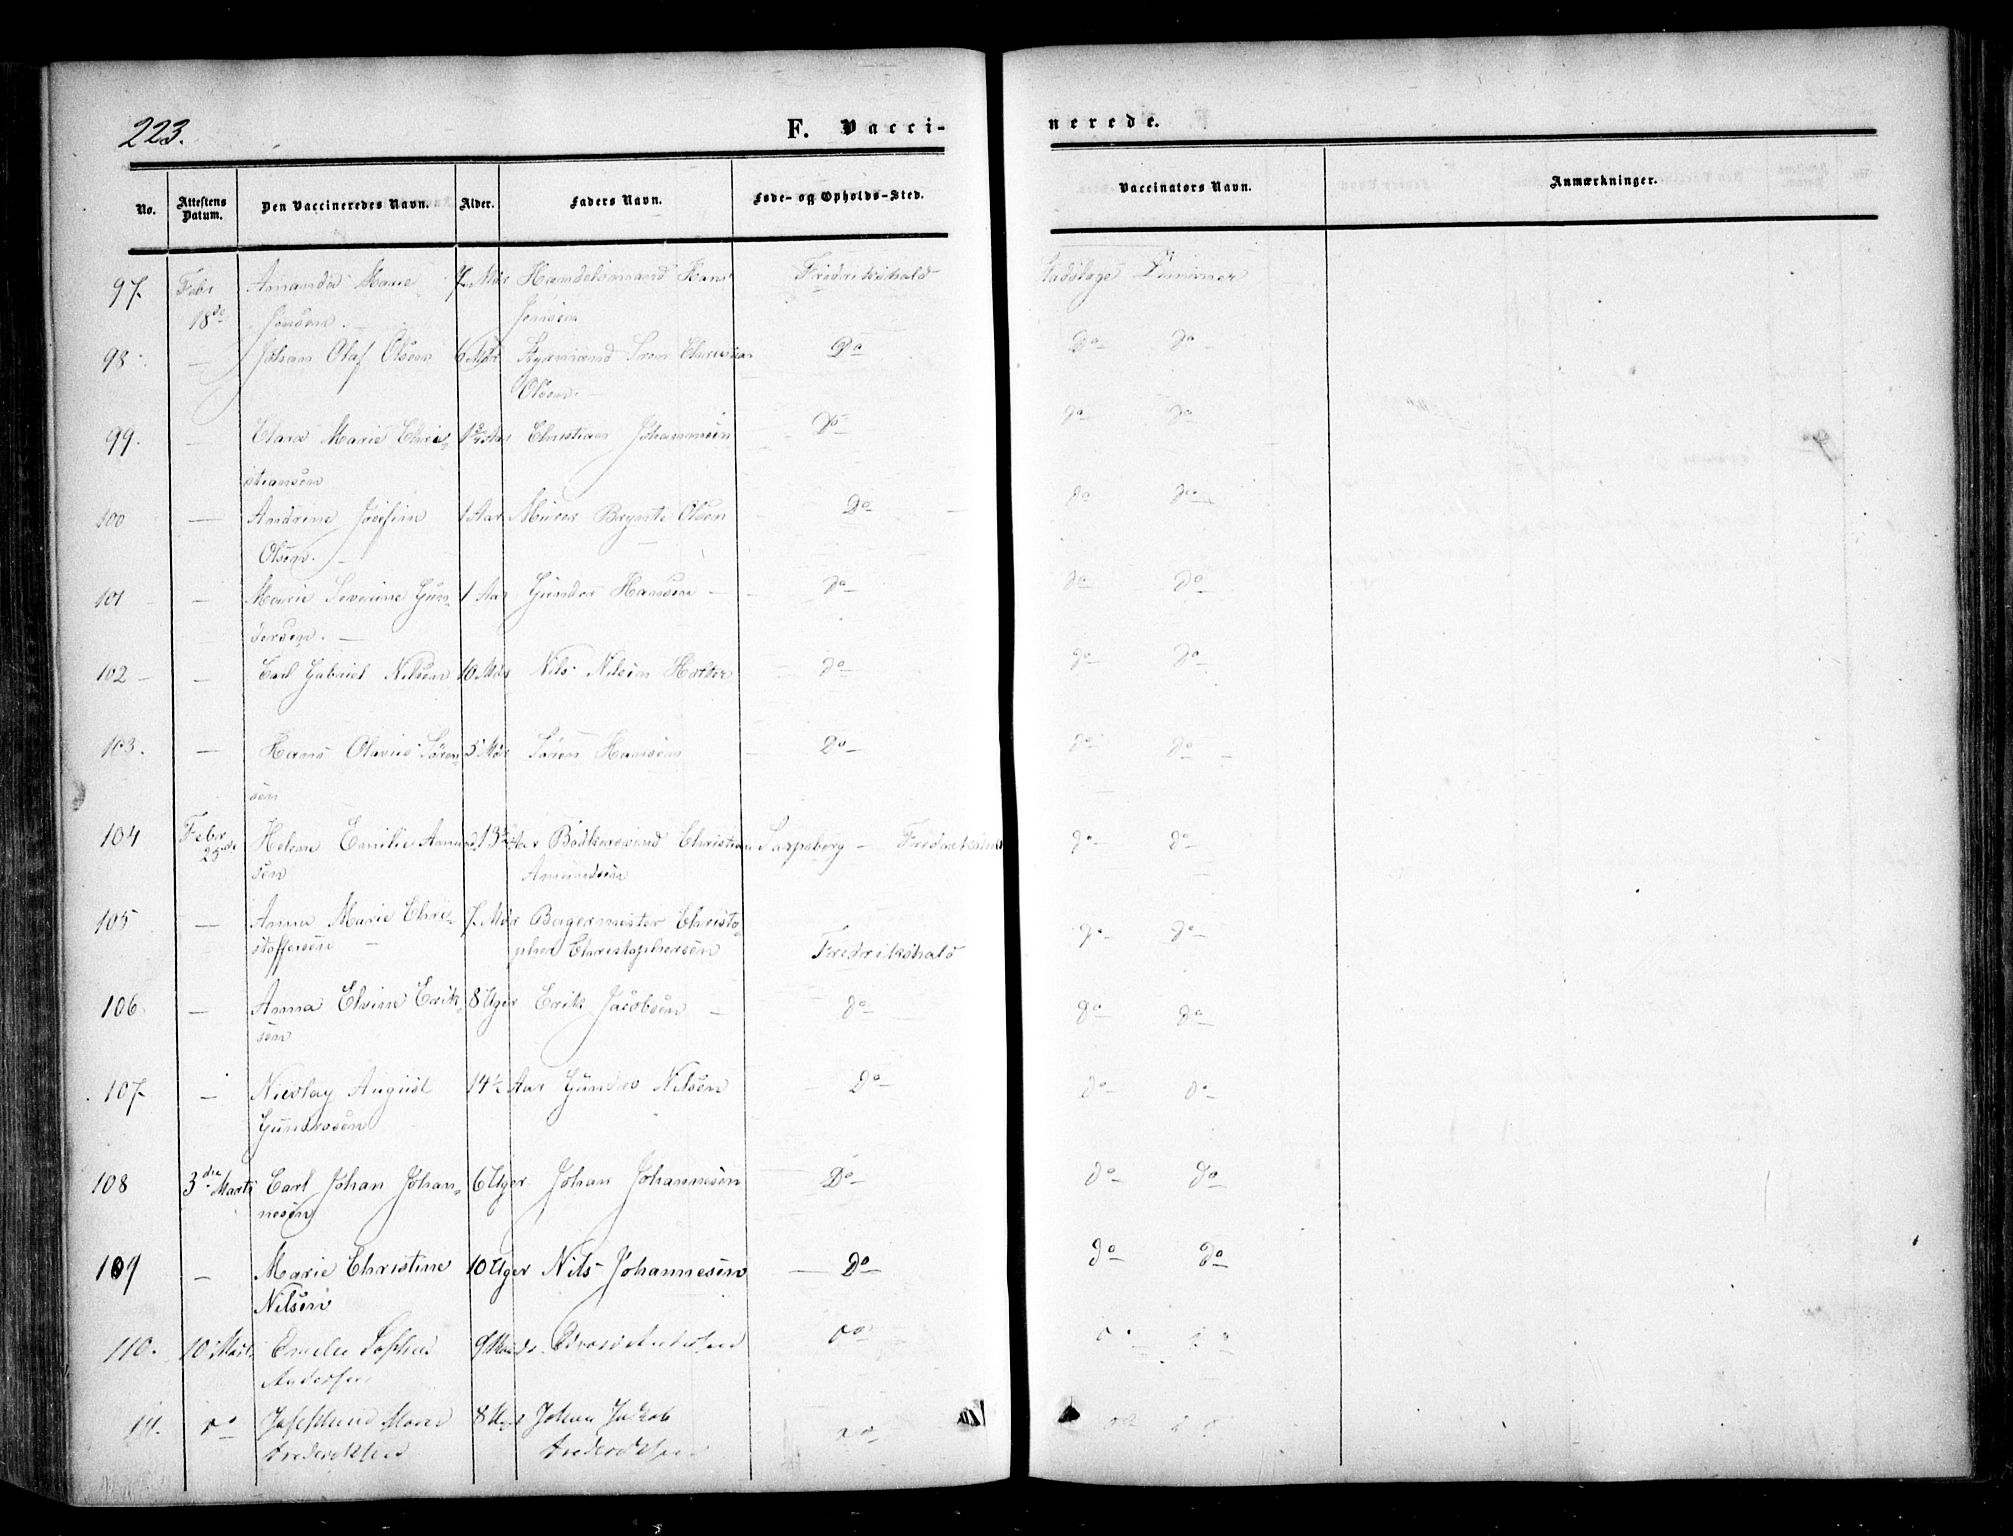 223.
F. Vacci-
nerede.
No. Attestens Datum. Den Vaccineredes Navn. Alder. Faders Navn. Føde- og Opholds-Sted. Vaccinators Navn. Anmærkninger.
97. Febr 18de Amanda Marie 7 Mdr Handelsmand Hans Fredrikshald Stadslæge
Jensen. Jensen
98. — Johan Olaf Olsen 6 Mdr Styrmand Christian Do Do do
Olsen. —
99. — Clara Marie Chri- Aar Christian Johannesen Do do do
stiansen
100 — Andrine Josefine 1 Aar Murer Olsen Do do do
Olsen. —
101 — Marie Severine Gun- 1 Aar Gunder Hansen — do do do
dersen. —
102 — — Carl Gabriel Nilsen 10 Mdr Nils Nilsen Holter do do do
103. — Hans Olavus Søren- 5 Mdr Søren Hansen Do do do
sen
104 Febr 25de Helene Emilie Amund 13½ Aar Bødkersvend Christian Sarpsborg — do do
sen Amundsen
105 — Anna Marie Chri- 7 Mdr Bagermester Christo-
stoffersen — pher Christophersen Fredrikshald do do
106. — Anna Elvine Erik- 8 Uger Erik Jacobsen — do do do
sen
107. — Nicolay August 14½ Aar Gundro Nilsen Do do do
Gundrosen
108 3die Marts Carl Johan Johan- 6 Uger Johan Johannesen Do do do
nesen
109 — Marie Christine 10 Uger Nils Johannesen — Do do do
Nilsen
110. 10 Marts Emelie Sophie 9 Andersen do
Andersen
111. do Josephine Marie 8 Uger Johan Jakob do
Frederiksen Frederiksen